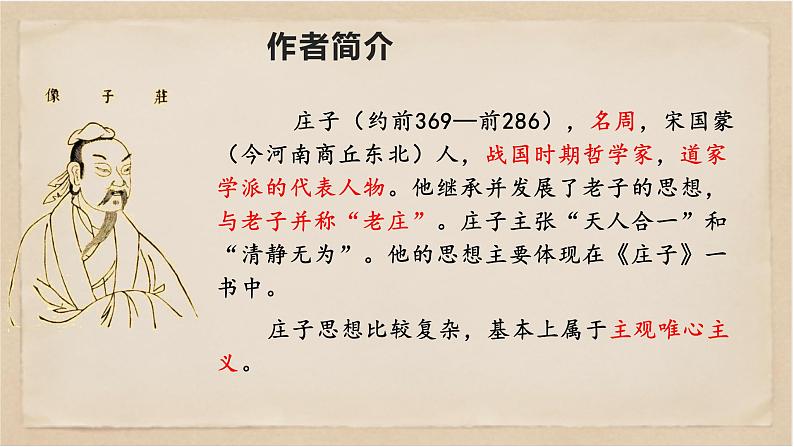 作者简介
像子莊
庄子（约前369—前286），名周，宋国蒙
（今河南商丘东北）人，战国时期哲学家，道家
学派的代表人物。他继承并发展了老子的思想，
与老子并称“老庄”。庄子主张“天人合一”和
“清静无为”。他的思想主要体现在《庄子》一
书中。
庄子思想比较复杂，基本上属于主观唯心主
义。